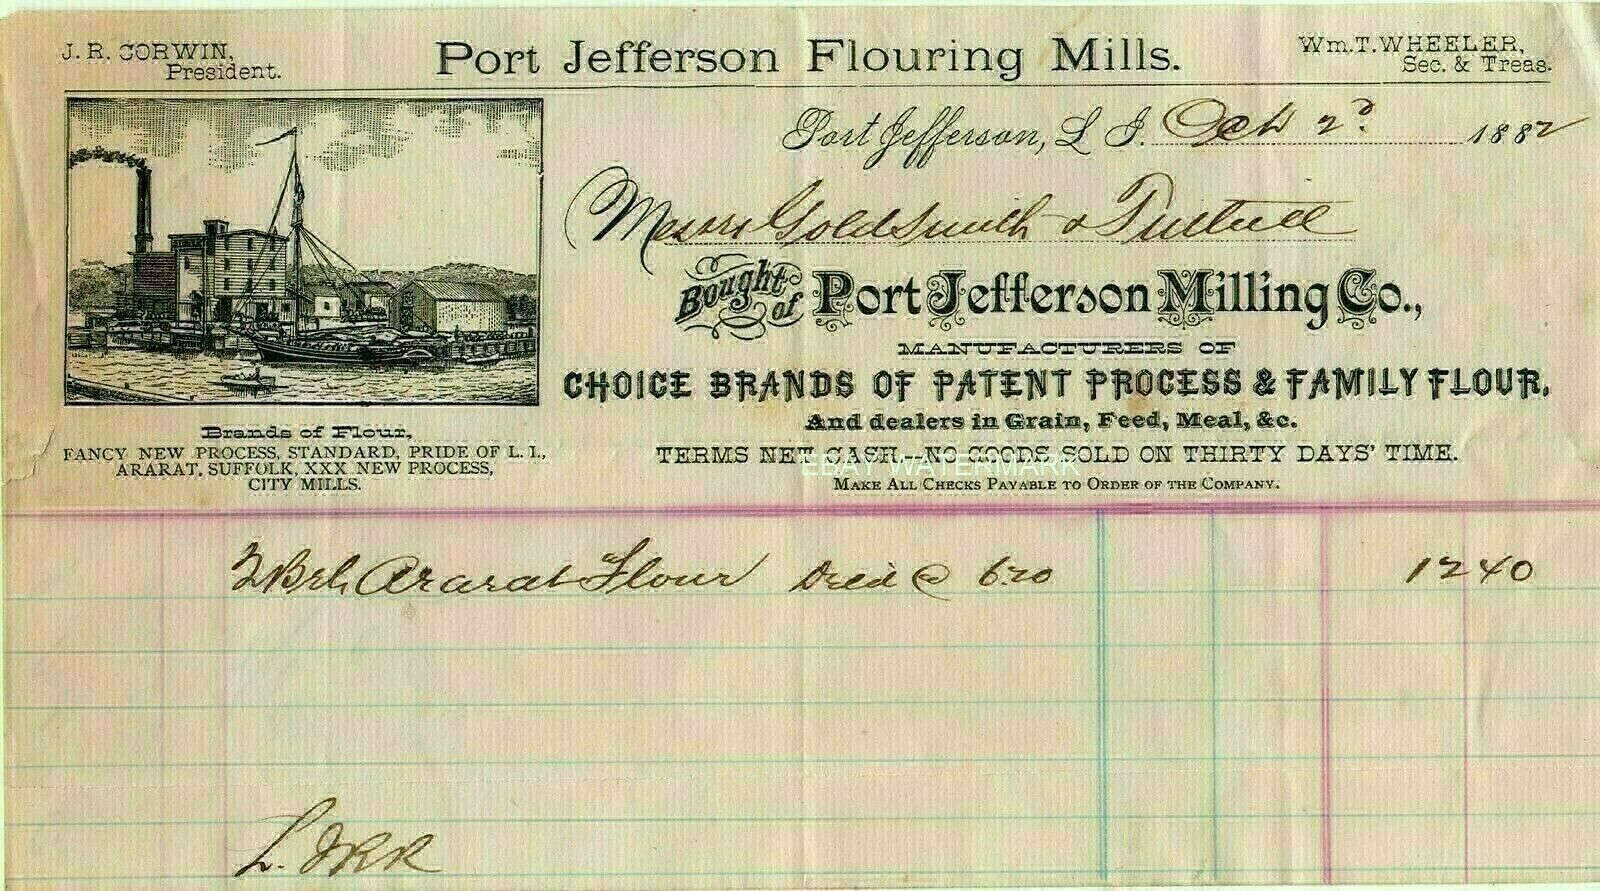 J. R. CORWIN,
President.
Port Jefferson Flouring Mills.
Wm. T. WHEELER,
Sec. & Treas.
Port Jefferson, L I. Oct 2d. 1882
Messrs Goldsmith & Tuthill
Bought of Port Jefferson Milling Co.,
MANUFACTURERS OF
CHOICE BRANDS OF PATENT PROCESS & FAMILY FLOUR,
And dealers in Grain, Feed, Meal, &c.
TERMS NET CASH.--NO GOODS SOLD ON THIRTY DAYS' TIME.
EBAY WATERMARK
MAKE ALL CHECKS PAYABLE TO ORDER OF THE COMPANY.
Brands of Flour,
FANCY NEW PROCESS, STANDARD, PRIDE OF L. I.,
ARARAT, SUFFOLK, XXX NEW PROCESS,
CITY MILLS.
2 Brls Ararat Flour Deld @ 6.20 12 40
L. I R R